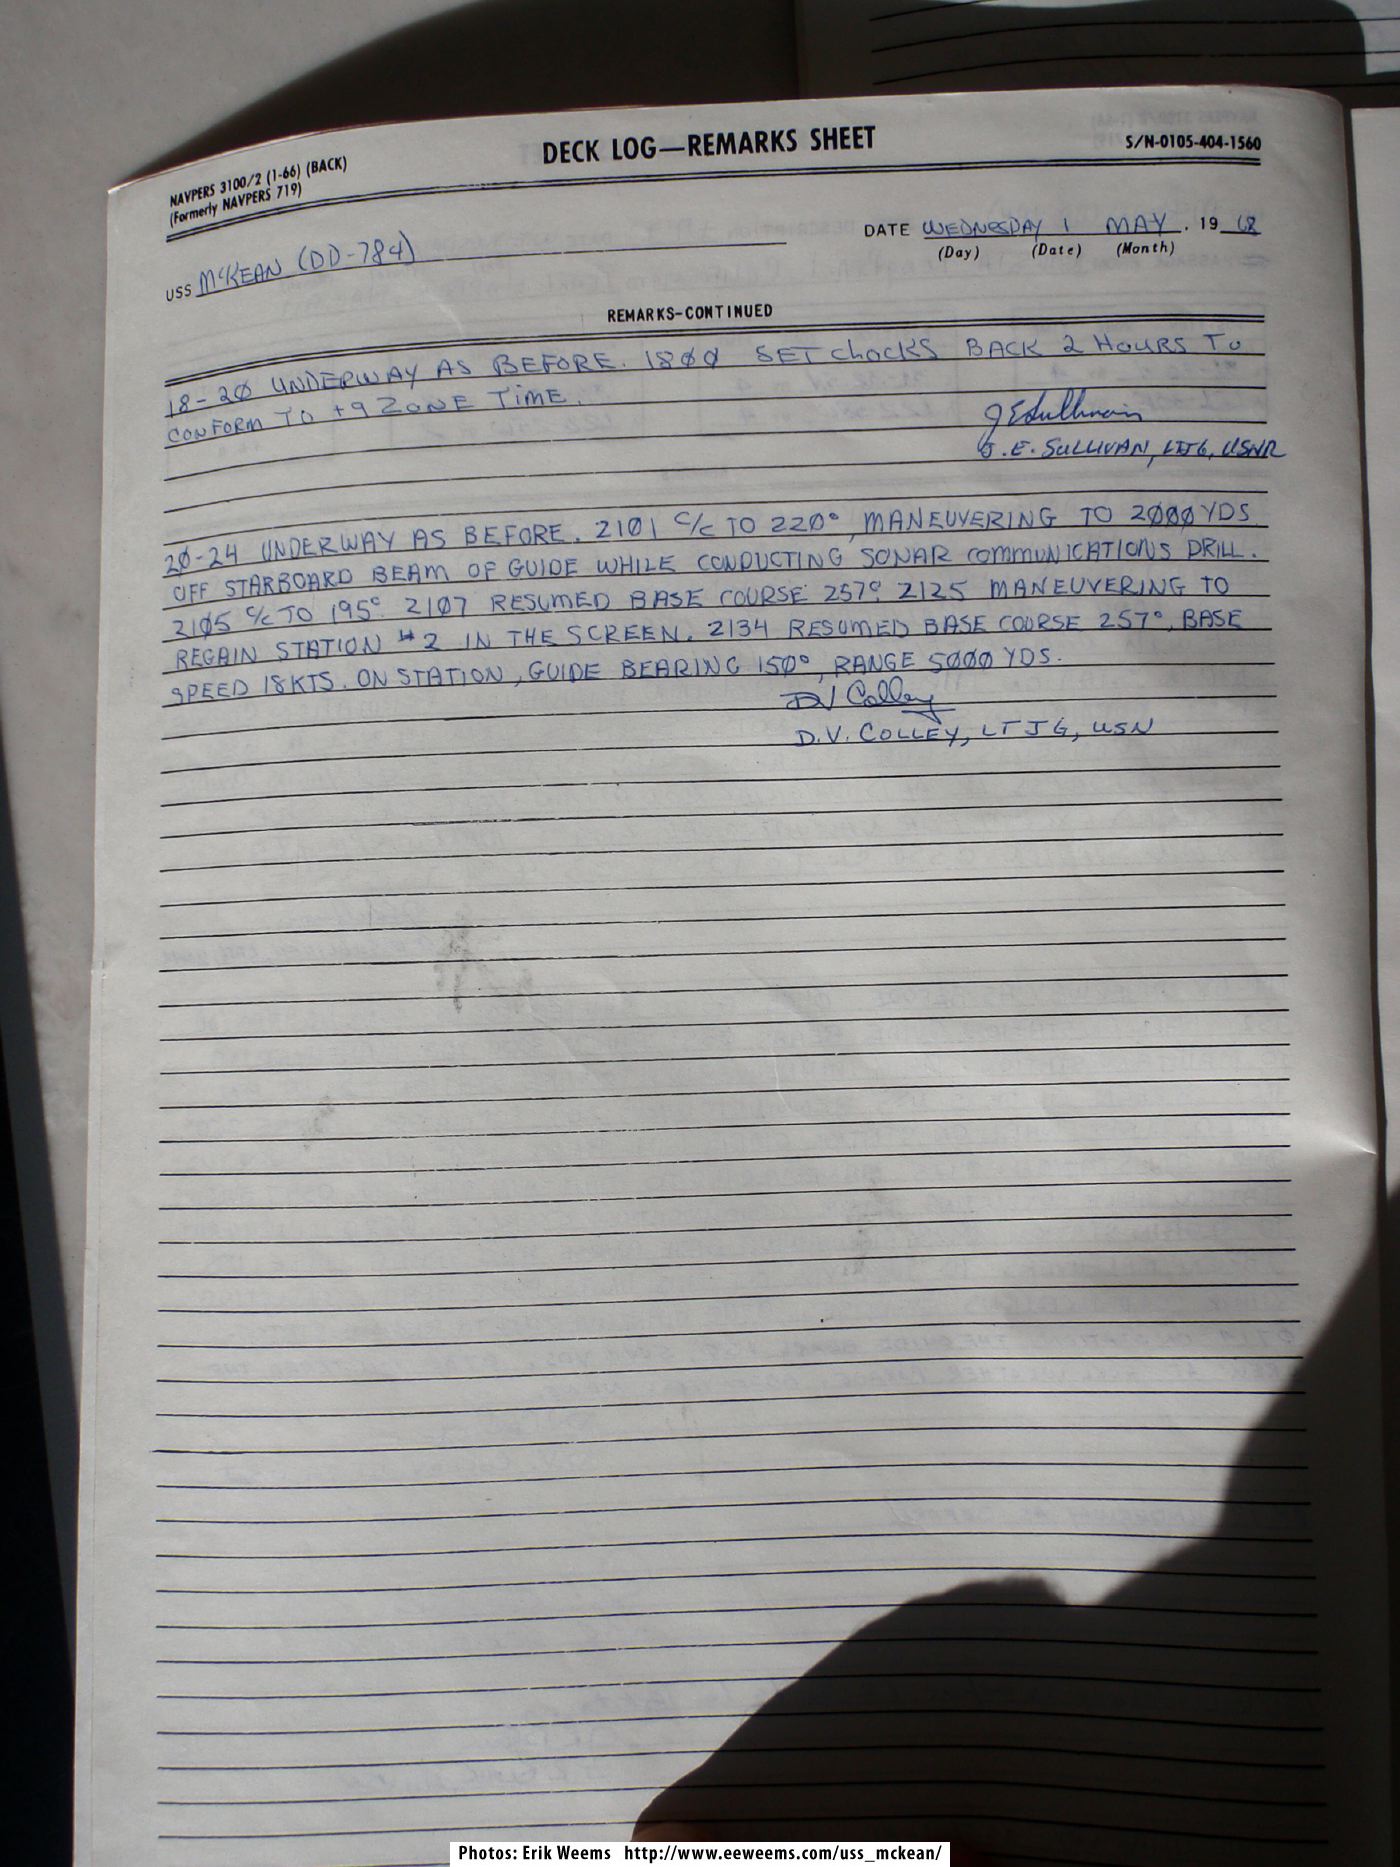 NAVPERS 3100/2 (1-66) (BACK)
(Formerly NAVPERS 719)
DECK LOG—REMARKS SHEET
S/N-0105-404-1560
USS McKEAN (DD-784)
DATE WEDNESDAY 1 MAY, 19 68
(Day) (Date) (Month)
REMARKS-CONTINUED
18-2Ø UNDERWAY AS BEFORE. 18ØØ SET clocks BACK 2 HOURS TO
CONFORM TO +9 ZONE TIME.
J E Sullivan
J. E. SULLIVAN, LTJG, USNR
2Ø-24 UNDERWAY AS BEFORE. 21Ø1 C/C TO 22Ø°, MANEUVERING TO 2ØØØ YDS
OFF STARBOARD BEAM OF GUIDE WHILE CONDUCTING SONAR COMMUNICATIONS DRILL.
21Ø5 C/C TO 195°. 21Ø7 RESUMED BASE COURSE 257°. 2125 MANEUVERING TO
REGAIN STATION #2 IN THE SCREEN. 2134 RESUMED BASE COURSE 257°, BASE
SPEED 18KTS. ON STATION, GUIDE BEARING 15Ø°, RANGE 5ØØØ YDS.
DV Colley
D.V. COLLEY, LTJG, USN
Photos: Erik Weems http://www.eeweems.com/uss_mckean/